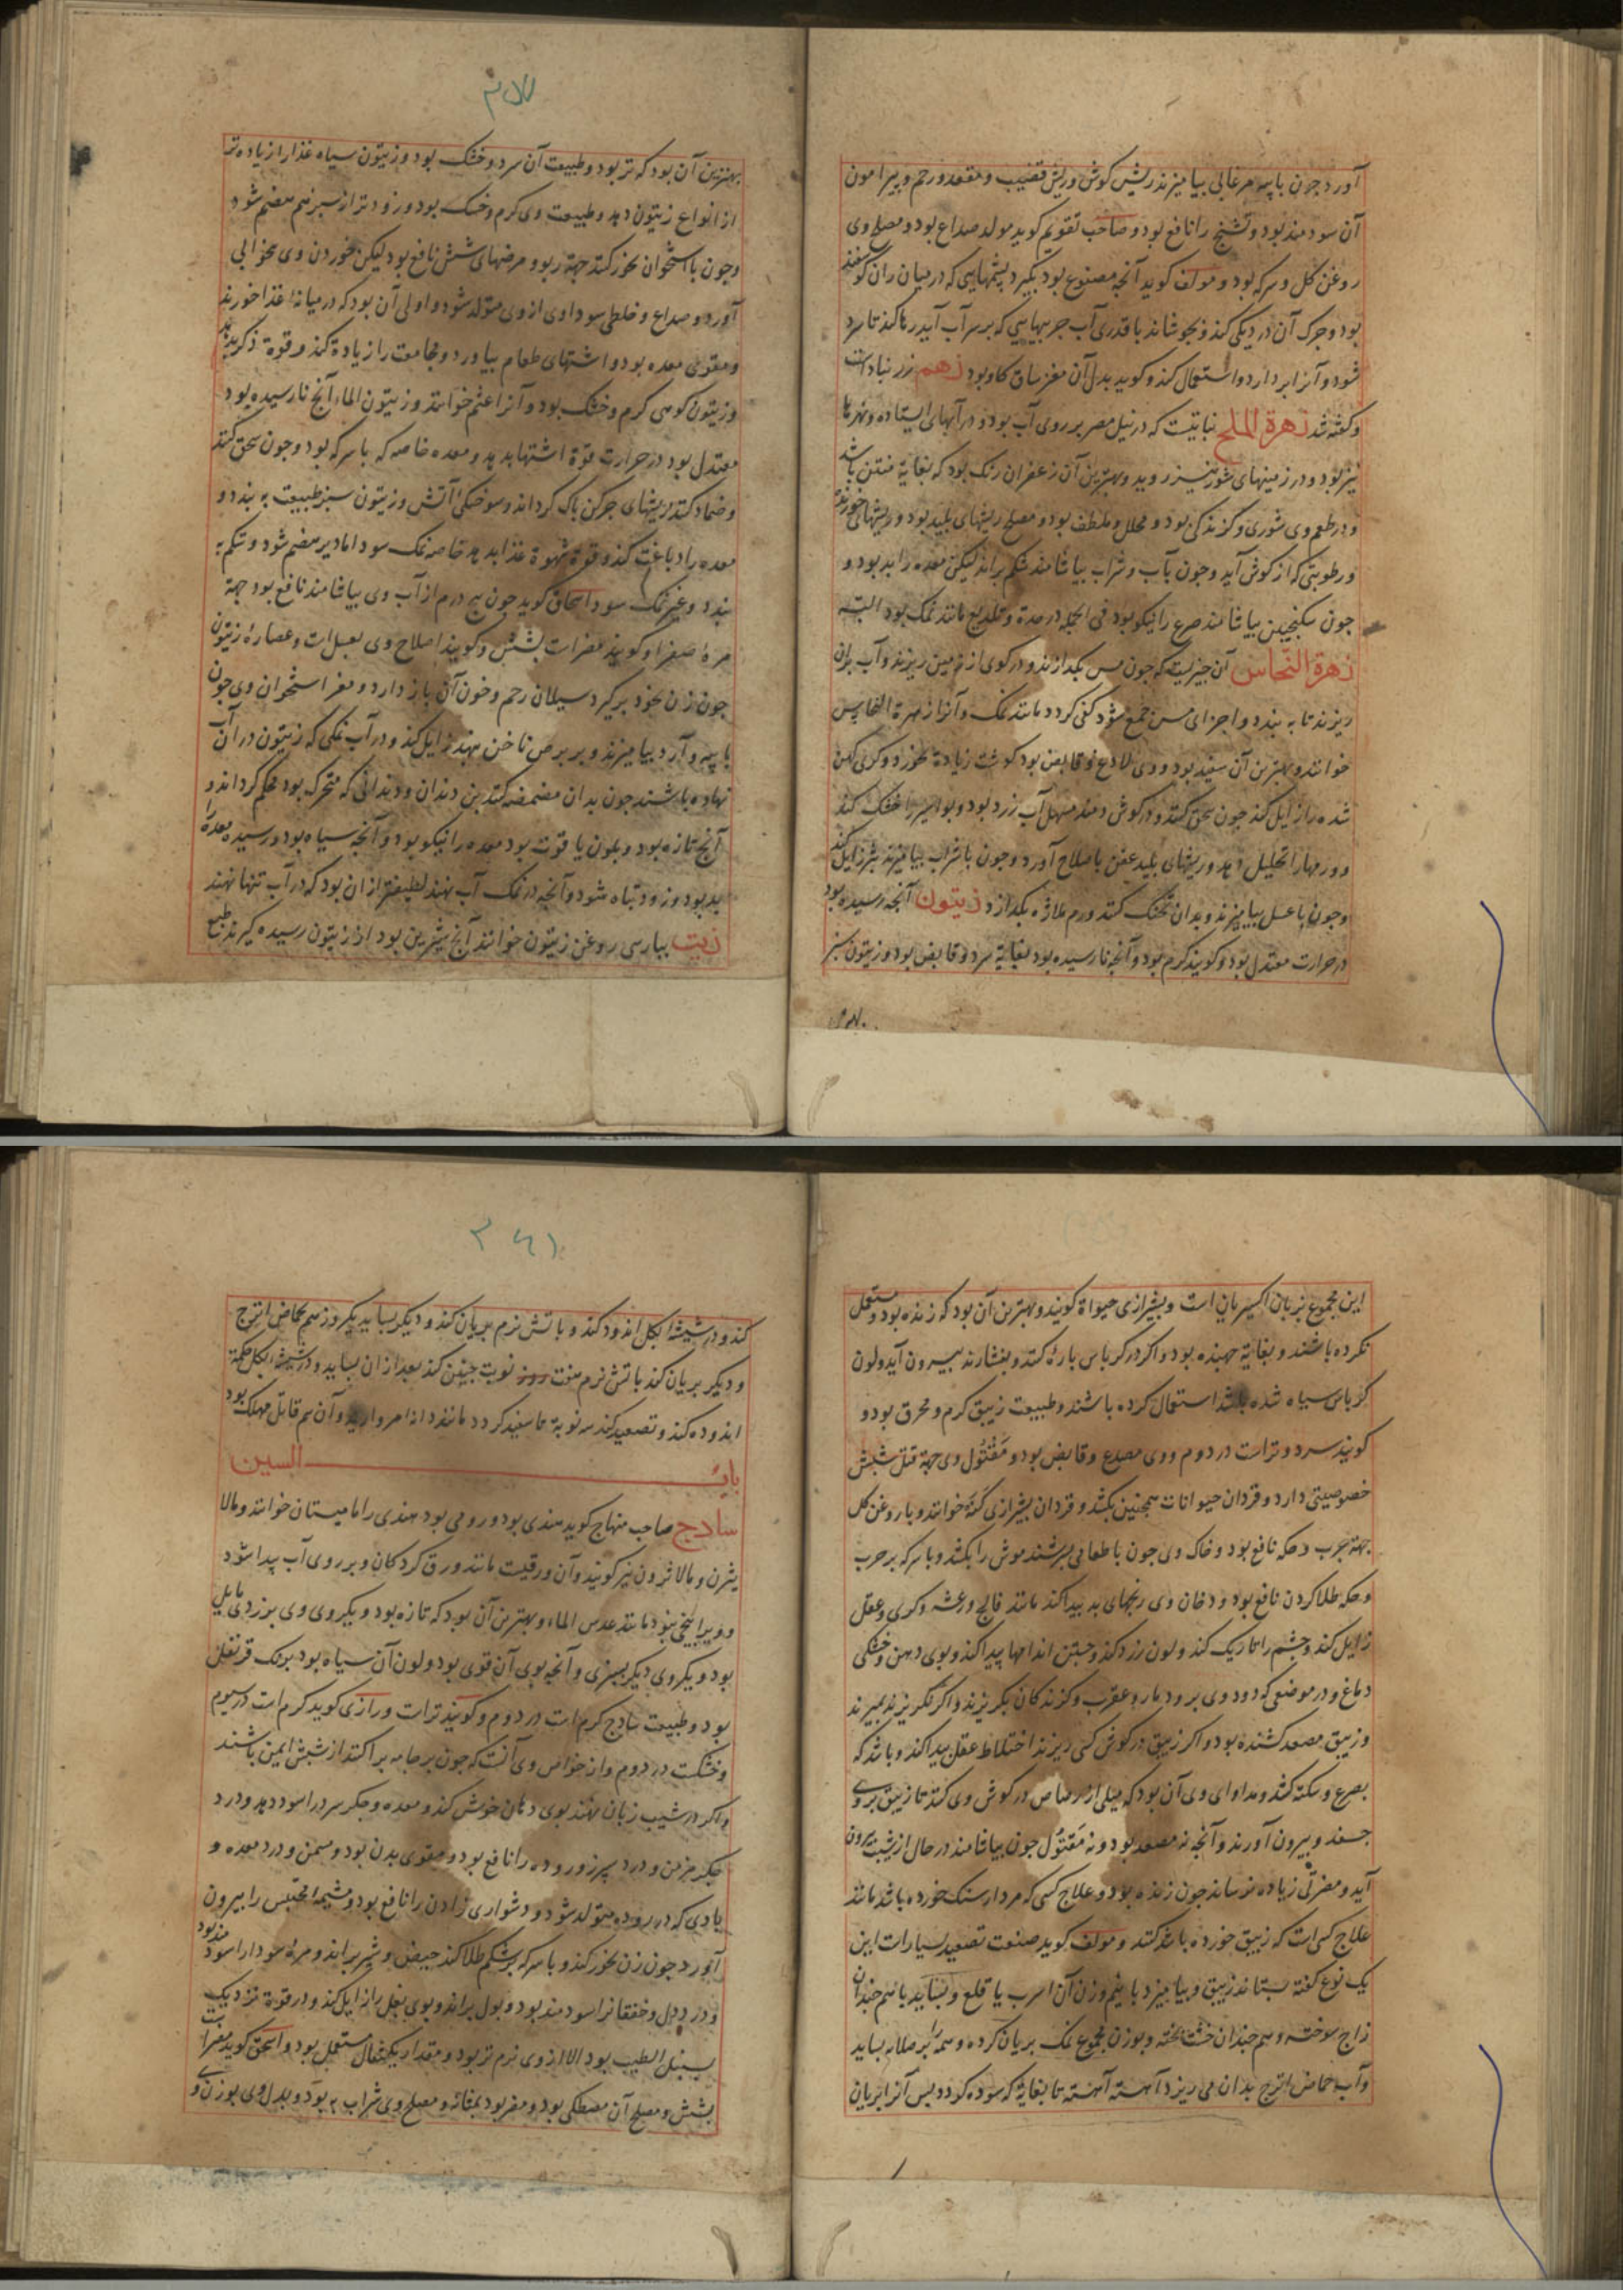 آورد چون با پیه مرغابی بیامیزند ریش گوش و ریش قضیب و مقعد و رحم و پیرامون
آن سودمند بود و تشنج را نافع بود و صاحب تقویم کوید مولد صداع بود و مصلح وی
روغن کل و سرکه بود و مولف کوید آنچه مصنوع بود بگیرد پشمهایی که در میان ران کوسفند
بود و چرک آن در دیکی کند و بجوشاند با قدری آب چربیهایی که بر سر آب آید رها کند تا سرد
شود و آنرا بردارد و استعمال کند و کویند بدل آن مغز ساق کاو بود زهم زرنباد است
و کفته شد زهرة الملح نباتیست که در نیل مصر بر روی آب بود و در آبهای ایستاده و نهرها
نیز بود و در زمینهای شور نیز روید و بهترین آن زعفران رنک بود که بغایة منتن باشد
و در طعم وی شوری و کزندکی بود و محلل و ملطف بود و مصلح ریشهای پلید بود و ریشهای خورنده
و رطوبتی که از کوش آید و چون بآب و شراب بیاشامند شکم براند لیکن معده را بد بود و
چون سکنجبین بیاشامند صرع را نیکو بود فی الجمله در حدة و تلذیع مانند نمک بود البته
زهرة النحاس آن چیزیست که چون مس بکدازند و در کوی از زمین ریزند و آب بران
ریزند تا به بندد و اجزای مس جمع شود کفی کردد مانند نمک و آنرا زهرة النحاس
خوانند و بهترین آن سفید بود و وی لاذع و قابض بود کوشت زیادة بخورد و کری کهن
شده را زایل کند چون سحق کنند و در کوش دمند مسهل آب زرد بود و بواسیر را خشک کند
و ورمها را تحلیل دهد و ریشهای پلید عفن باصلاح آورد و چون با شراب بیامیزند بثر زایل کند
و چون با عسل بیامیزند و بدان تحنک کنند ورم ملازه بکدازد زیتون آنچه رسیده بود
در حرارت معتدل بود و کویند کرم بود و آنچه نارسیده بود بغایة سرد و قابض بود و زیتون سبز
بهترین
۳۵۷
بهترین آن بود که تر بود و طبیعت آن سرد و خشک بود و زیتون سیاه غذا را زیاده‌تر
از انواع زیتون دهد و طبیعت وی کرم و خشک بود و زودتر از سبز هم هضم شود
و چون با استخوان بخور کنند جهة ربو و مرضهای شش نافع بود لیکن خوردن وی بیخوابی
آورد و صداع و خلطی سوداوی از وی متولد شود و اولی آن بود که در میانه غذا خورند
و مقوی معده بود و اشتهای طعام بیاورد و مجامعت را زیادة کند و قوة ذکر بدهد
و زیتون کوهی کرم و خشک بود و آنرا عتم خوانند و زیتون الماء آنچ نارسیده بود
معتدل بود در حرارت قوة اشتها بدهد و معده خاصه که با سرکه بود و چون سحق کنند
و ضماد کنند ریشهای چرکن پاک کرداند و سوختکی آتش و زیتون سبز طبیعت به بندد و
معده را دباغت کند و قوة شهوة غذا بدهد خاصه نمک سود اما دیر هضم شود و شکم به
بندد و غیر نمک سود اسحاق کوید چون پنج درم از آب وی بیاشامند نافع بود جهة
مرهٔ صفرا و کویند مضرات بشش و کویند اصلاح وی بعسل است و عصارهٔ زیتون
چون زن بخود برگیرد سیلان رحم و خون آن باز دارد و مغز استخوان وی چون
با پیه و آرد بیامیزند و بر برص ناخن نهند زایل کند و در آب نمکی که زیتون در آن آب
نهاده باشند چون بدان مضمضه کنند بن دندان و دندانی که متحرک بود محکم کرداند و
آنچ تازه بود و بلون یاقوت بود معده را نیکو بود و آنچه سیاه بود و رسیده معده را
بد بود و زود تباه شود و آنچه در نمک آب نهند لطیفتر از ان بود که در آب تنها نهند
زیت بپارسی روغن زیتون خوانند آنچ شیرین بود از زیتون رسیده کیرند طبع
این مجموع بزبان اکسیریان است و بشیرازی حیواة کویند و بهترین آن بود که زنده بود و مستعمل
نکرده باشند و بغایة جهنده بود و اکر در کرباس پاره کنند و بفشارند بیرون آید و لون
کرباس سیاه شده باشد استعمال کرده باشند و طبیعت زیبق کرم و محرق بود و
کویند سرد و تر است در دوم و وی مصدع و قابض بود و مقتول وی جهة قتل شپش
خصوصیتی دارد و قردان حیوانات همچنین بکشد و قردان بشیرازی کنه خوانند و با روغن کل
جهة جرب و حکه نافع بود و خاک وی چون با طعامی سرشند موش را بکشد و با سرکه بر جرب
و حکه طلا کردن نافع بود و دخان وی رنجهای بد پیدا کند مانند فالج و رعشه و کری و عقل
زایل کند و چشم را تاریک کند و لون زرد کند و جستن اندامها پیدا کند و بوی دهن و خشکی
دماغ و در موضعی که دود وی برود مار و عقرب و کزندکان بکریزند و اکر نکریزند بمیرند
و زیبق مصعد کشنده بود و اکر زیبق در کوش کسی ریزند اختلاط عقل پیدا کند و باشد که
بصرع و سکته کشد و مداوای وی آن بود که میلی از رصاص در کوش وی کنند تا زیبق بر وی
چسفد و بیرون آورند و آنچه نه مصعد بود و نه مقتول چون بیاشامند در حال از شیب بیرون
آید و مضرتی زیاده نرساند چون زنده بود و علاج کسی که مردارسنک خورده باشد مانند
علاج کسی است که زیبق خورده باشد کنند و مولف کوید صنعت تصعید بسیار است این
یک نوع کفته ستاند زیبق و بیامیزد با نیم وزن آن اسرب یا قلع و بساید با هم چندان
زاج سوخته و هم چندان خشت پخته و بوزن مجموع نمک بریان کرده و همه بر صلایه بساید
و آب حماض اترج بدان می ریزد آهسته آهسته تا بغایة که سوده کردد پس آنرا بریان
۳۶۱
کند و در شیشه ابکل اندود کند و باتش نرم بریان کند و دیکر بساید یکروز هم بحماض اترج
و دیکر بریان کند باتش نرم هفت روز نوبت چنین کند بعد از ان بساید و در شیشه ابکل حکمة
اندوده کند و تصعید کند سه نوبة تا سفید کردد مانند دانه مروارید و آن سم قاتل مهلک بود
باب السین
سادج صاحب منهاج کوید هندی بود و رومی بود هندی را مامیستان خوانند و مالا
یثرن و مالاثرون نیز کویند و آن ورقیست مانند ورق کردکان و بر روی آب پیدا شود
و ویرا بیخی نبود مانند عدس الماء و بهترین آن بود که تازه بود و یکروی وی بزردی مایل
بود و یکروی دیکر بسبزی و آنچه بوی آن قوی بود و لون آن سیاه بود برنک قرنفل
بود و طبیعت سادج کرم است در دوم و کویند تر است و رازی کوید کرم است در سیوم
و خشکست در دوم و از خواص وی آنست که چون بر جامه پراکنند از شپش ایمن باشند
و اکر در شیب زبان نهند بوی دهان خوش کند و معده و جکر سرد را سود دهد و درد
جکر مزمن و درد سپرز و روده را نافع بود و مقوی بدن بود و مسمن و درد معده و
بادی که در روده متولد شود و دشواری زادن را نافع بود و مشیمه محتبس را بیرون
آورد چون زن بخور کند و با سرکه بر شکم طلا کند حیض و شیر براند و مرهٔ سودا را سودمند بود
و درد دل و خفقانرا سودمند بود و بول براند و بوی بغل زایل کند و در قوة نزدیک
بسنبل الطیب بود الا از وی نرم تر بود و مقدار یکمثقال مستعمل بود و اسحق کوید مضر است
بشش و مصلح آن مصطکی بود و مضر بود بمثانه و مصلح وی شراب به بود و بدل وی بوزن وی